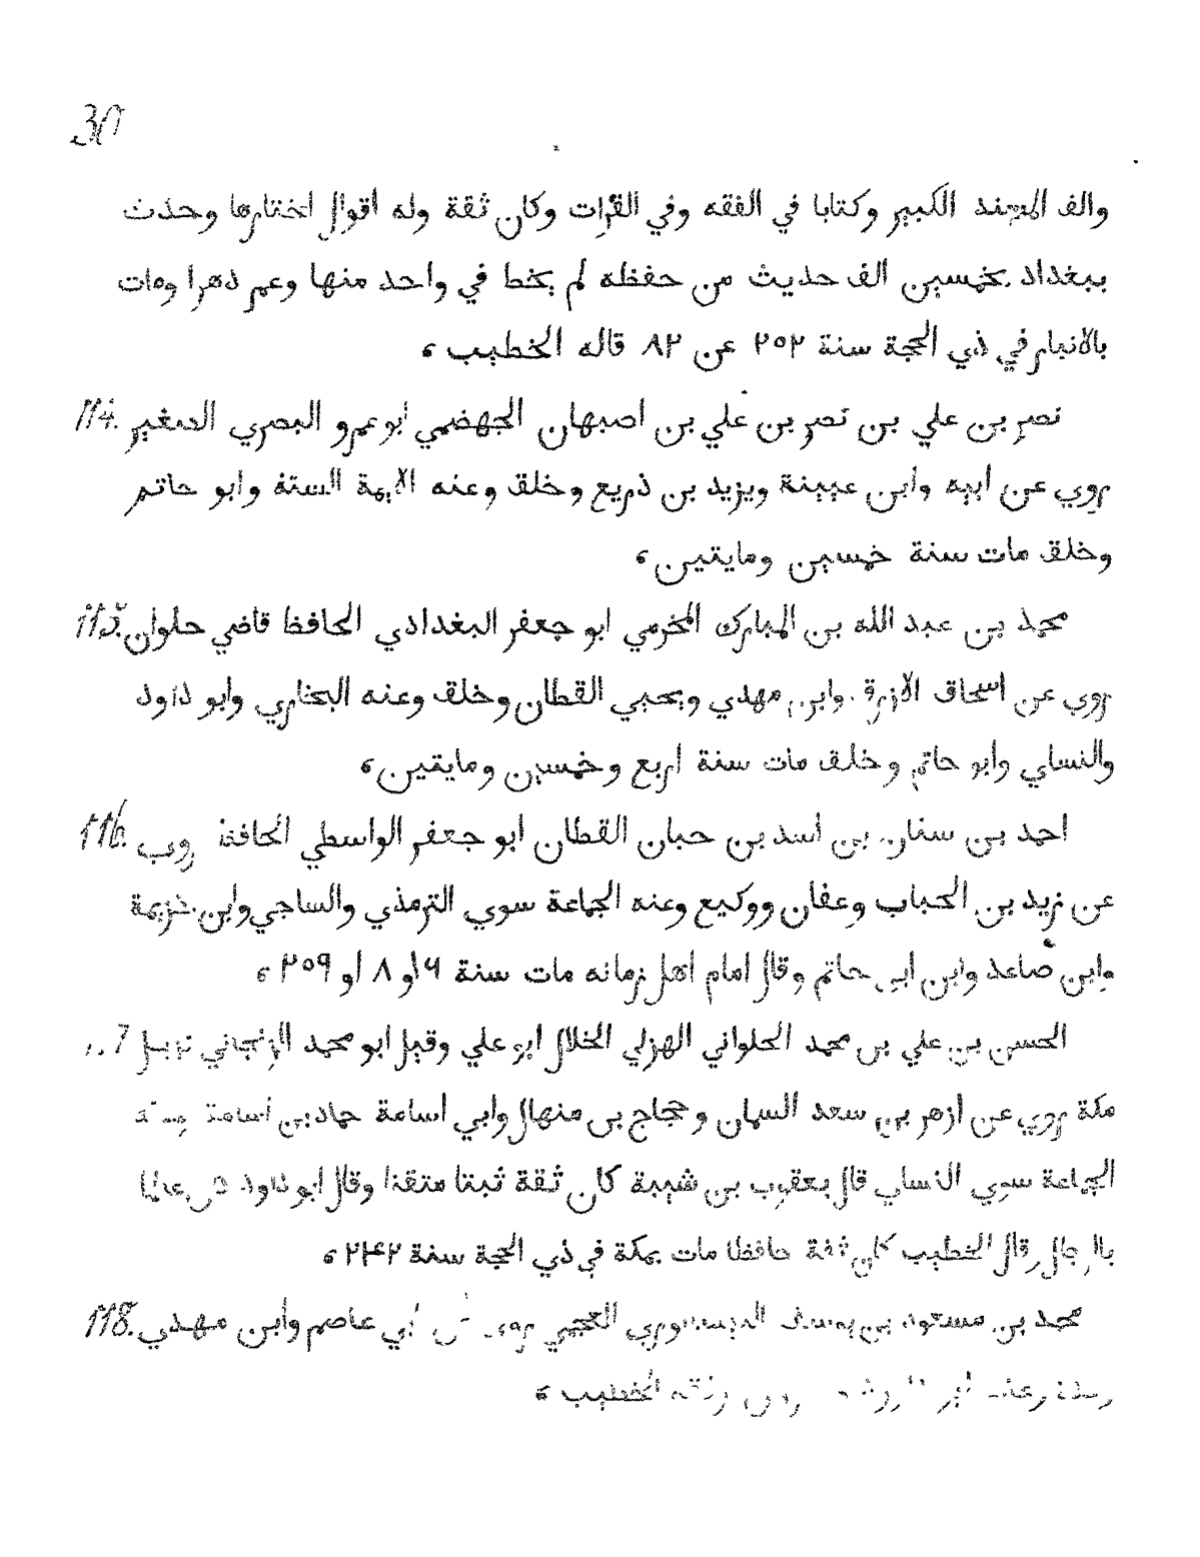 30
والف المسند الكبير وكتابا في الفقه وفي القرات وكان ثقة وله اقوال اختارها وحدث
ببغداد بخمسين الف حديث من حفظه لم يخط في واحد منها وعمر دهرا ومات
بالانبار في ذي الحجة سنة ٢٥٢ عن ٨٢ قاله الخطيب ،
114. نصر بن علي بن نصر بن علي بن اصبهان الجهضمي ابو عمرو البصري الصغير
روي عن ابيه وابن عيينة ويزيد بن ذريع وخلق وعنه الايمة الستة وابو حاتم
وخلق مات سنة خمسين ومايتين ،
115. محمد بن عبد الله بن المبارك المخرمي ابو جعفر البغدادي الحافظ قاضي حلوان
روي عن اسحاق الازرق وابن مهدي ويحيي القطان وخلق وعنه البخاري وابو داود
والنساي وابو حاتم وخلق مات سنة اربع وخمسين ومايتين ،
116. احمد بن سنان بن اسد بن حبان القطان ابو جعفر الواسطي الحافظ روي
عن زيد بن الحباب وعفان ووكيع وعنه الجماعة سوي الترمذي والساجي وابن خزيمة
وابن صاعد وابن ابي حاتم وقال امام اهل زمانه مات سنة ٦ او ٨ او ٢٥٩ ،
الحسن بن علي بن محمد الحلواني الهزلي الخلال ابو علي وقيل ابو محمد الزنجاني نزيل
مكة روي عن ازهر بن سعد السمان وحجاج بن منهال وابي اسامة حماد بن اسامة وعنه
الجماعة سوي النساي قال يعقوب بن شيبة كان ثقة ثبتا متقنا وقال ابو داود كان عالما
بالرجال وقال الخطيب كان ثقة حافظا مات بمكة في ذي الحجة سنة ٢٤٢ ،
118. محمد بن مسعود بن يوسف النيسابوري العجمي روي عن ابي عاصم وابن مهدي
وعنه ابو وثقه الخطيب ،